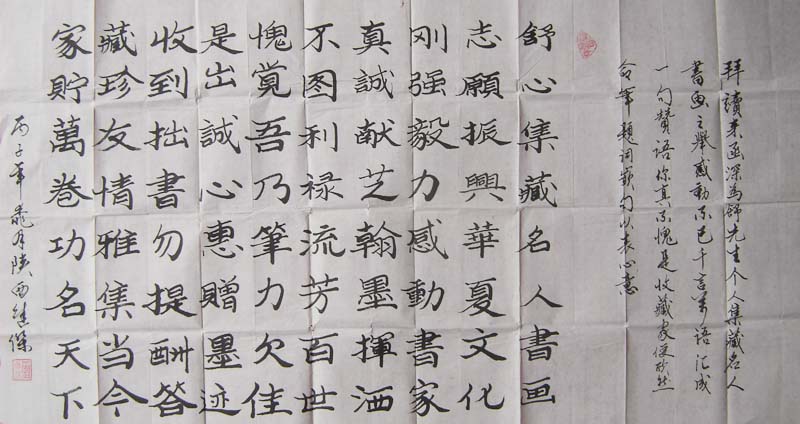 拜讀来函深为舒先生个人集藏名人
書画之舉感動不已千言萬语汇成
一句贊语你真不愧是收藏家便欣然
命筆題词數句以表心意
舒心集藏名人書画
志願振興華夏文化
刚强毅力感動書家
真誠献芝翰墨揮洒
不图利禄流芳百世
愧覚吾乃筆力欠佳
是出誠心惠贈墨迹
收到拙書勿提酬答
藏珍友情雅集当今
家貯萬巻功名天下
丙子年 陕西